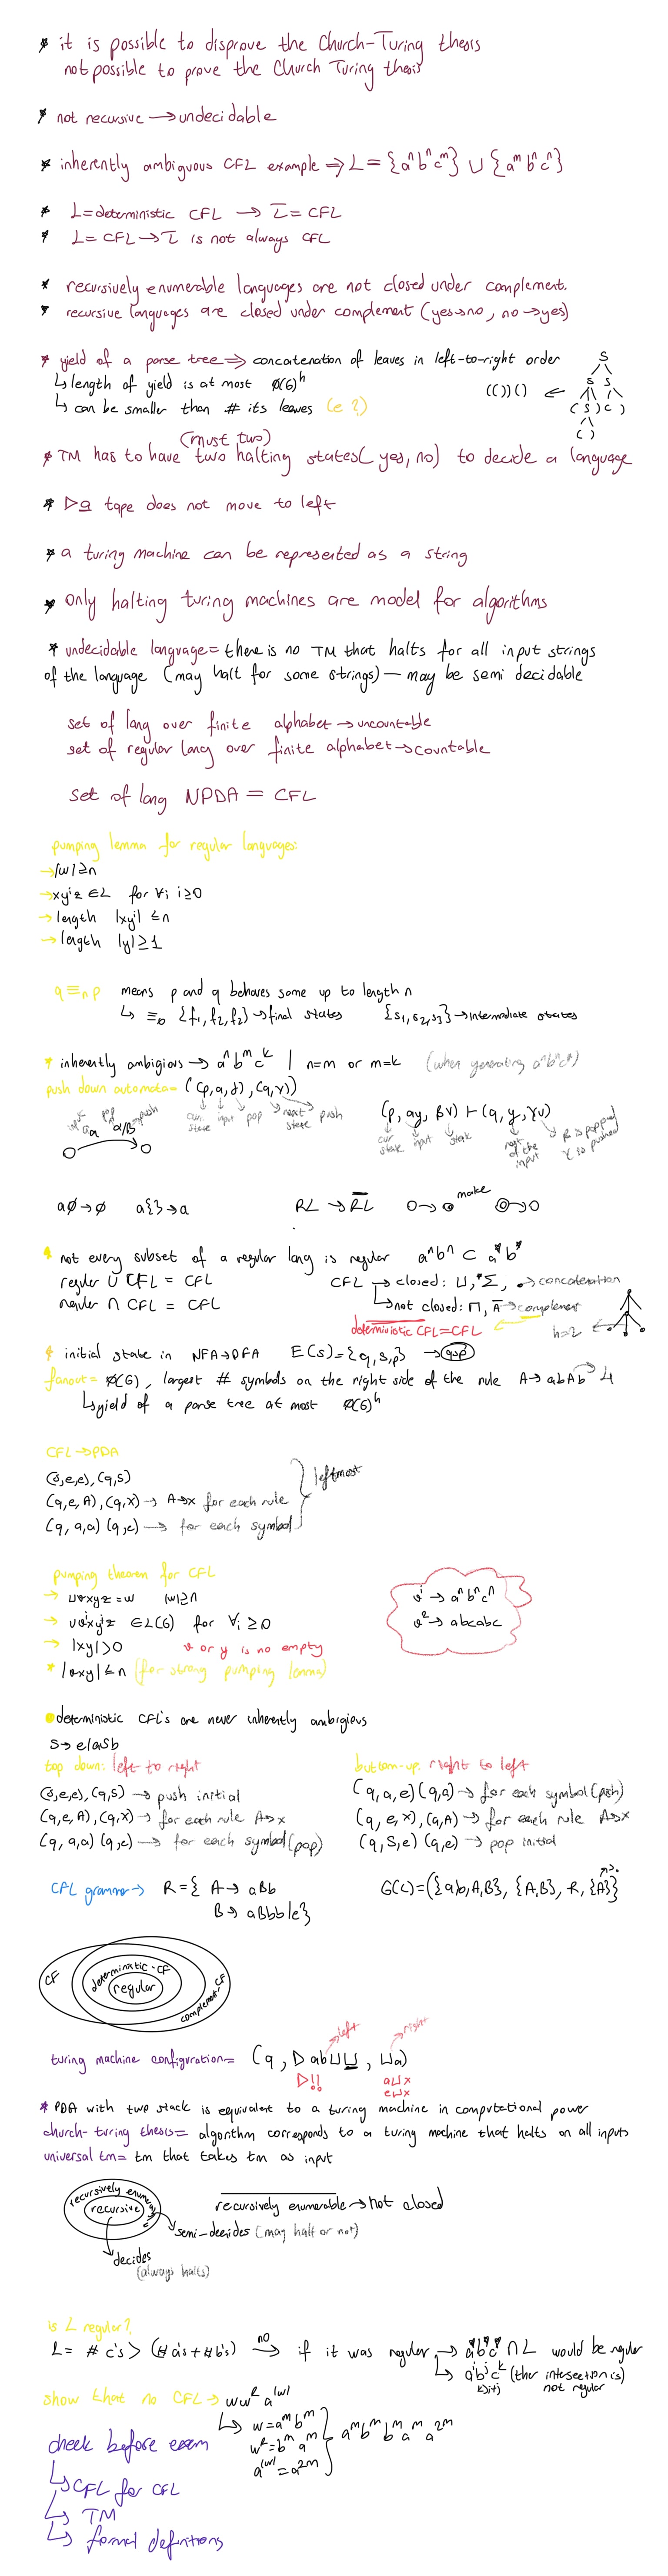 * it is possible to disprove the Church-Turing thesis
not possible to prove the Church Turing thesis
* not recursive → undecidable
* inherently ambiguous CFL example ⇒ L = {aⁿbⁿcᵐ} ∪ {aᵐbⁿcⁿ}
* L = deterministic CFL → L̅ = CFL
* L = CFL → L̅ is not always CFL
* recursively enumerable languages are not closed under complement.
* recursive languages are closed under complement (yes→no, no→yes)
* yield of a parse tree ⇒ concatenation of leaves in left-to-right order
↳ length of yield is at most φ(G)ʰ
↳ can be smaller than # its leaves (e ?)
(())() ←
S
S S
( S ) ( )
( )
(must two)
* TM has to have two halting states (yes, no) to decide a language
* ▷a tape does not move to left
* a turing machine can be represented as a string
* only halting turing machines are model for algorithms
* undecidable language = there is no TM that halts for all input strings
of the language (may halt for some strings) — may be semi decidable
set of lang over finite alphabet → uncountable
set of regular lang over finite alphabet → countable
set of lang NPDA = CFL
pumping lemma for regular languages:
→ |w| ≥ n
→ xyⁱz ∈ L for ∀i i≥0
→ length |xy| ≤ n
→ length |y| ≥ 1
q ≡ₙ p means p and q behaves same up to length n
↳ ≡₀ {f₁, f₂, f₂} → final states {s₁, s₂, s₃} → intermediate states
* inherently ambigious → aⁿbᵐcᵏ | n=m or m=k (when generating aⁿbⁿcⁿ)
push down automata = ((p, a, β), (q, γ))
cur. state input pop next state push
input pop push
a α/β
(p, ay, βv) ⊢ (q, y, γv)
cur state input stak rest of the input β is popped γ is pushed
aø → ø a{} → a
RL → R̅L̅ make
* not every subset of a regular lang is regular aⁿbⁿ ⊂ a*b*
regular ∪ CFL = CFL
regular ∩ CFL = CFL
CFL → closed: ∪, *Σ, • → concatenation
↳ not closed: ∩, A̅ → complement
deterministic CFL = CFL
h=2
* initial state in NFA → DFA E(s) = {q, s, p} → qsp
fanout = φ(G), largest # symbols on the right side of the rule A → abAb → 4
↳ yield of a parse tree at most φ(G)ʰ
CFL → PDA
(s,e,e), (q,S)
(q,e,A), (q,x) → A→x for each rule
(q,a,a) (q,e) → for each symbol
leftmost
pumping theorem for CFL
→ uvxyz = w |w| ≥ n
→ uvⁱxyⁱz ∈ L(G) for ∀i ≥ 0
→ |xy| > 0 v or y is no empty
* |vxy| ≤ n (for strong pumping lemma)
vⁱ → aⁿbⁿcⁿ
v² → abcabc
deterministic CFL's are never inherently ambigious
S → e/aSb
top down: left to right
(s,e,e), (q,S) → push initial
(q,e,A), (q,x) → for each rule A→x
(q,a,a) (q,e) → for each symbol (pop)
buttom-up: right to left
(q,a,e) (q,a) → for each symbol (push)
(q,e,x), (q,A) → for each rule A→x
(q,S,e) (q,e) → pop initial
CFL grammer → R = { A → aBb
B → aBbb/e}
G(L) = ({a,b,A,B}, {A,B}, R, {A})
CF
deterministic-CF
regular
complement-CF
left right
turing machine configuration = (q, ▷ab⊔⊔, ⊔a)
▷!!
a⊔x
e⊔x
* PDA with two stack is equivalent to a turing machine in computational power
church-turing thesis = algorithm corresponds to a turing machine that halts on all inputs
universal tm = tm that takes tm as input
recursively enumerable
recursive
recursively enumerable → not closed
semi-decides (may halt or not)
decides
(always halts)
is L regular?
L = # c's > (#a's + #b's) no→ if it was regular → a*b*c* ∩ L would be reguler
↳ aⁱbʲcᵏ (ther intersection is)
k>i+j not regular
show that no CFL → wwᴿa^|w|
↳ w = aᵐbᵐ
wᴿ = bᵐaᵐ
a^|w| = a²ᵐ
aᵐbᵐbᵐaᵐa²ᵐ
check before exam
↳ CFL for CFL
↳ TM
↳ formal definitions